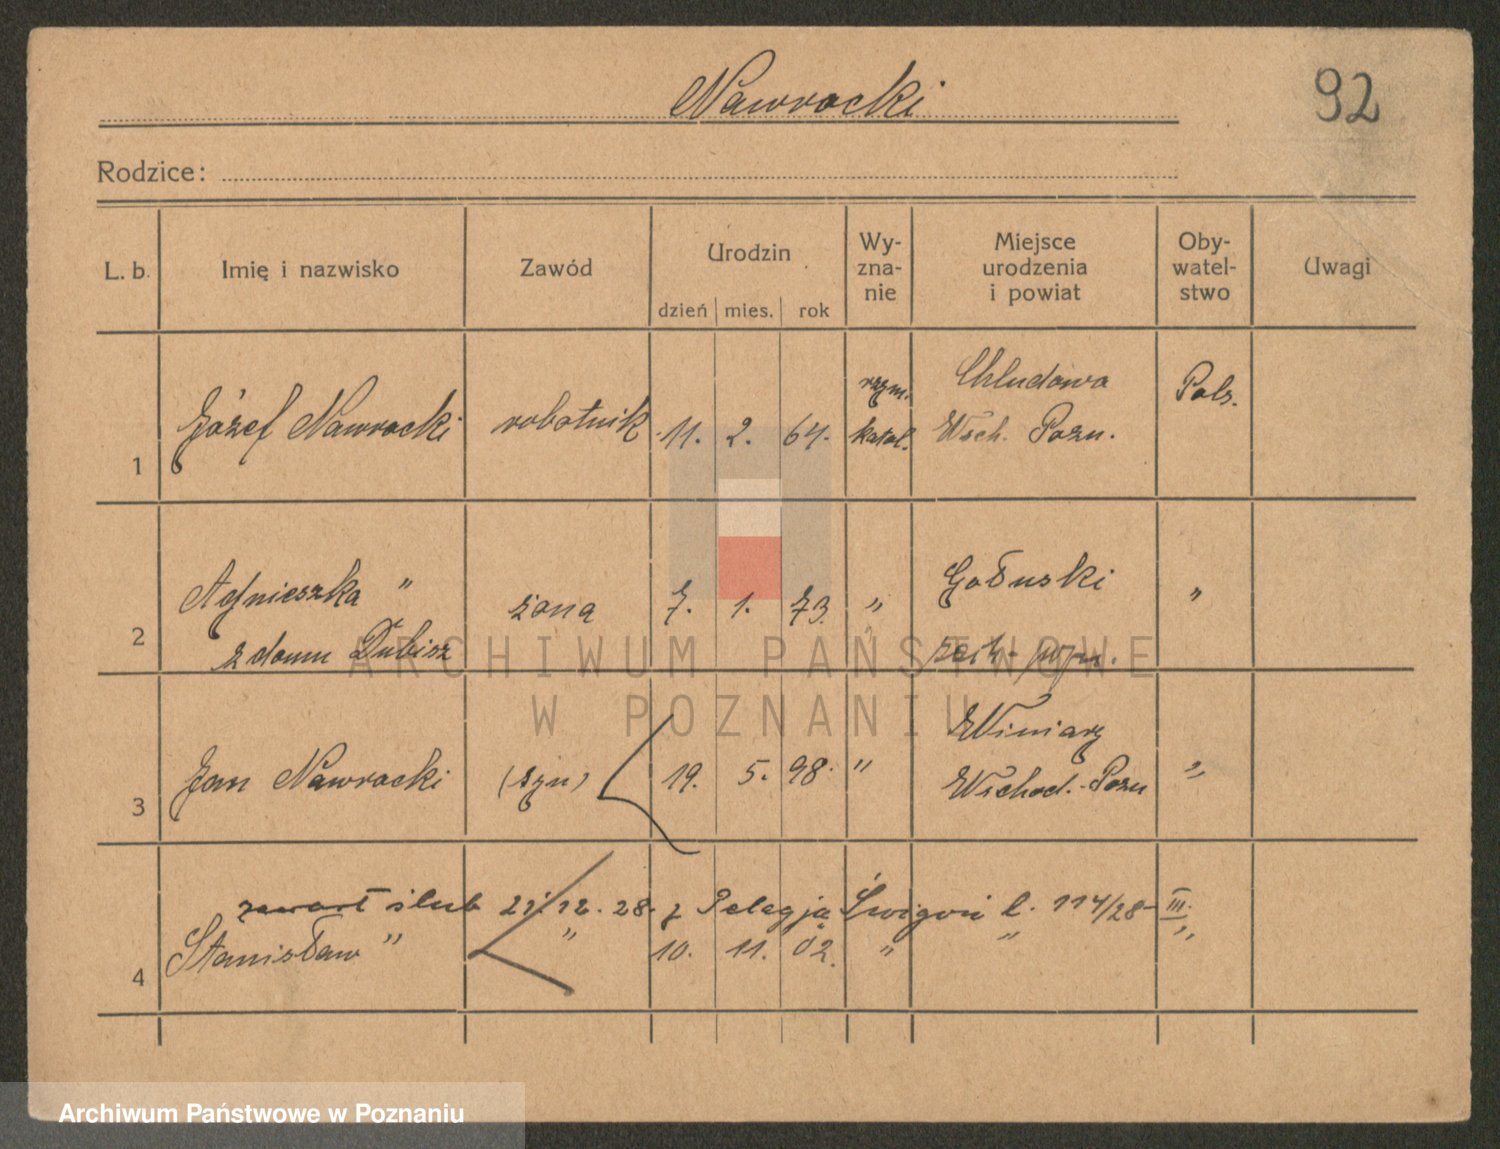 Nawrocki
92
Rodzice:
L. b. Imię i nazwisko Zawód Urodzin dzień mies. rok Wy-zna-nie Miejsce urodzenia i powiat Oby-watel-stwo Uwagi
1 Józef Nawrocki robotnik 11. 2. 64. rzym. katol. Chludowa Wsch. Pozn. Pols.
2 Agnieszka " żona 7. 1. 73. " Gołuski "
z domu Dubisz
ARCHIWUM PAŃSTWOWE
W POZNANIU
3 Jan Nawrocki (syn) 19. 5. 98. " Winiary Wschod.-Pozn "
zawarł ślub 12. 28. z Pelagją l. 114/28 III.
4 Stanisław " " 10. 11. 02. " " "
Archiwum Państwowe w Poznaniu